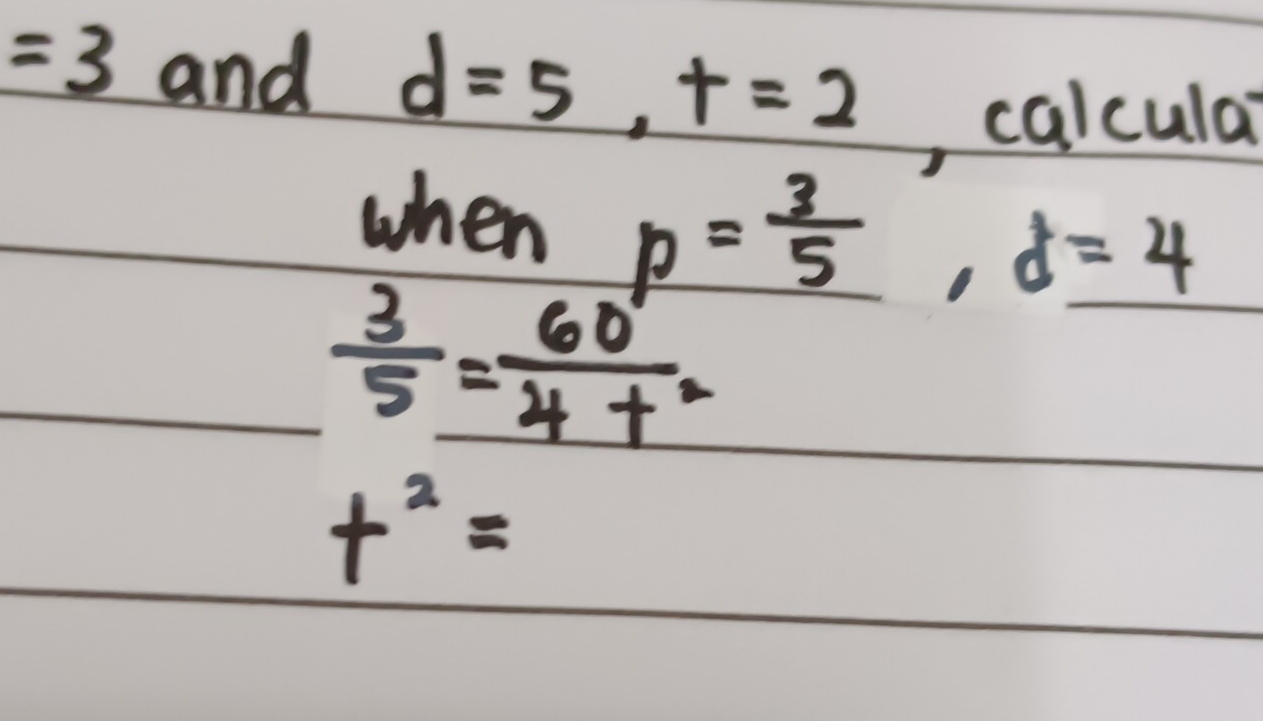 =3 and d=5, t=2, calcula
when p = 3/5, d=4
3/5 = 60/4t²
t² =